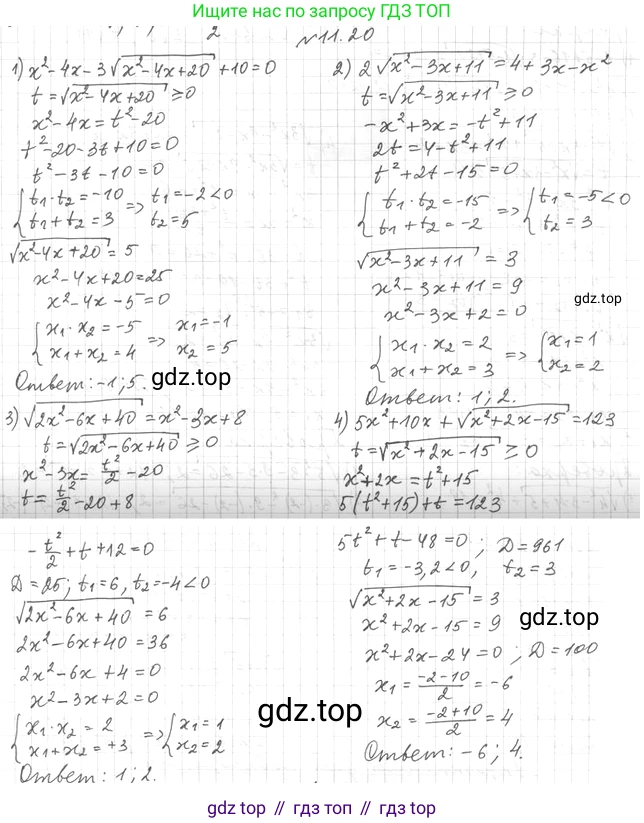 Ищите нас в поисковых системах по запросу ГДЗ ТОП
2
№11.20
1) x²-4x-3√(x²-4x+20)+10=0
t=√(x²-4x+20) ≥0
x²-4x=t²-20
t²-20-3t+10=0
t²-3t-10=0
{t₁·t₂=-10 => t₁=-2<0
t₁+t₂=3 t₂=5
√(x²-4x+20)=5
x²-4x+20=25
x²-4x-5=0
{x₁·x₂=-5 => x₁=-1
x₁+x₂=4 x₂=5
Ответ: -1; 5.
gdz.top
2) 2√(x²-3x+11)=4+3x-x²
t=√(x²-3x+11) ≥0
-x²+3x=-t²+11
2t=4-t²+11
t²+2t-15=0
{t₁·t₂=-15 => {t₁=-5<0
t₁+t₂=-2 t₂=3
√(x²-3x+11)=3
x²-3x+11=9
gdz.top
x²-3x+2=0
{x₁·x₂=2 => {x₁=1
x₁+x₂=3 x₂=2
Ответ: 1; 2.
3) √(2x²-6x+40)=x²-3x+8
t=√(2x²-6x+40) ≥0
x²-3x=t²/2-20
t=t²/2-20+8
-t²/2+t+12=0
D=25; t₁=6, t₂=-4<0
√(2x²-6x+40)=6
2x²-6x+40=36
2x²-6x+4=0
x²-3x+2=0
{x₁·x₂=2 => {x₁=1
x₁+x₂=+3 x₂=2
Ответ: 1; 2.
gdz.top
4) 5x²+10x+√(x²+2x-15)=123
t=√(x²+2x-15) ≥0
x²+2x=t²+15
5(t²+15)+t=123
5t²+t-48=0; D=961
t₁=-3,2<0, t₂=3
√(x²+2x-15)=3
gdz.top
x²+2x-15=9
x²+2x-24=0; D=100
x₁=(-2-10)/2=-6
x₂=(-2+10)/2=4
Ответ: -6; 4.
gdz.top // гдз.top // гдз.топ